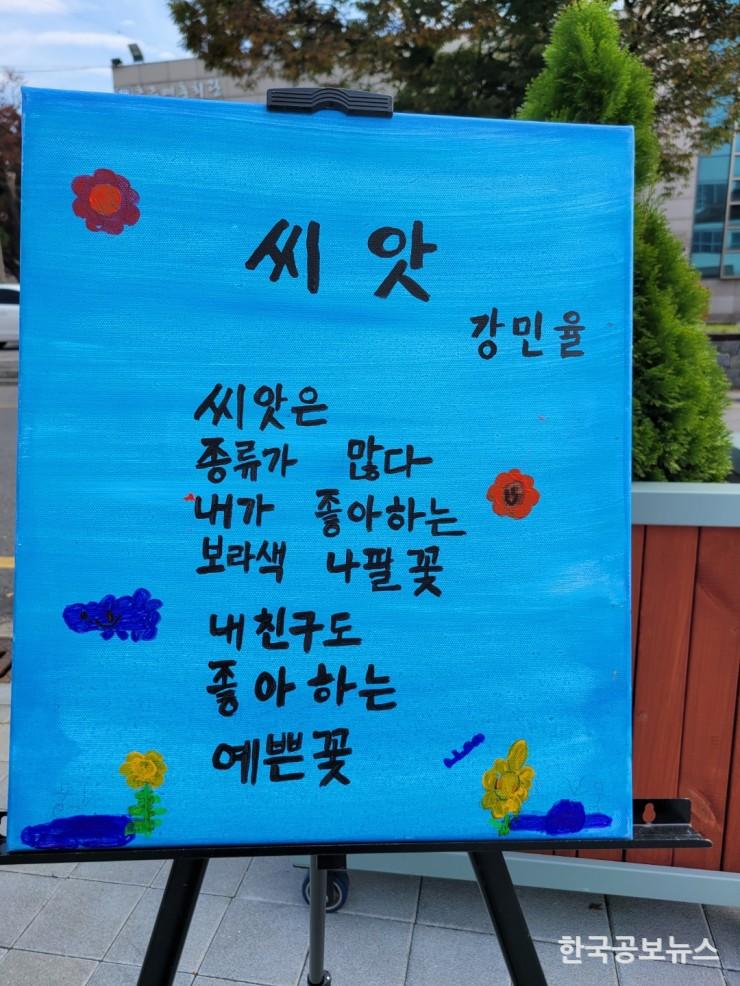 씨앗
강민율
씨앗은
종류가 많다
내가 좋아하는
보라색 나팔꽃
내친구도
좋아하는
예쁜꽃
한국공보뉴스